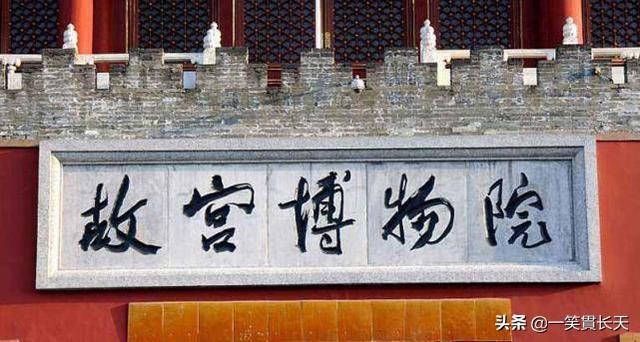 故宫博物院
头条 @一笑貫长天